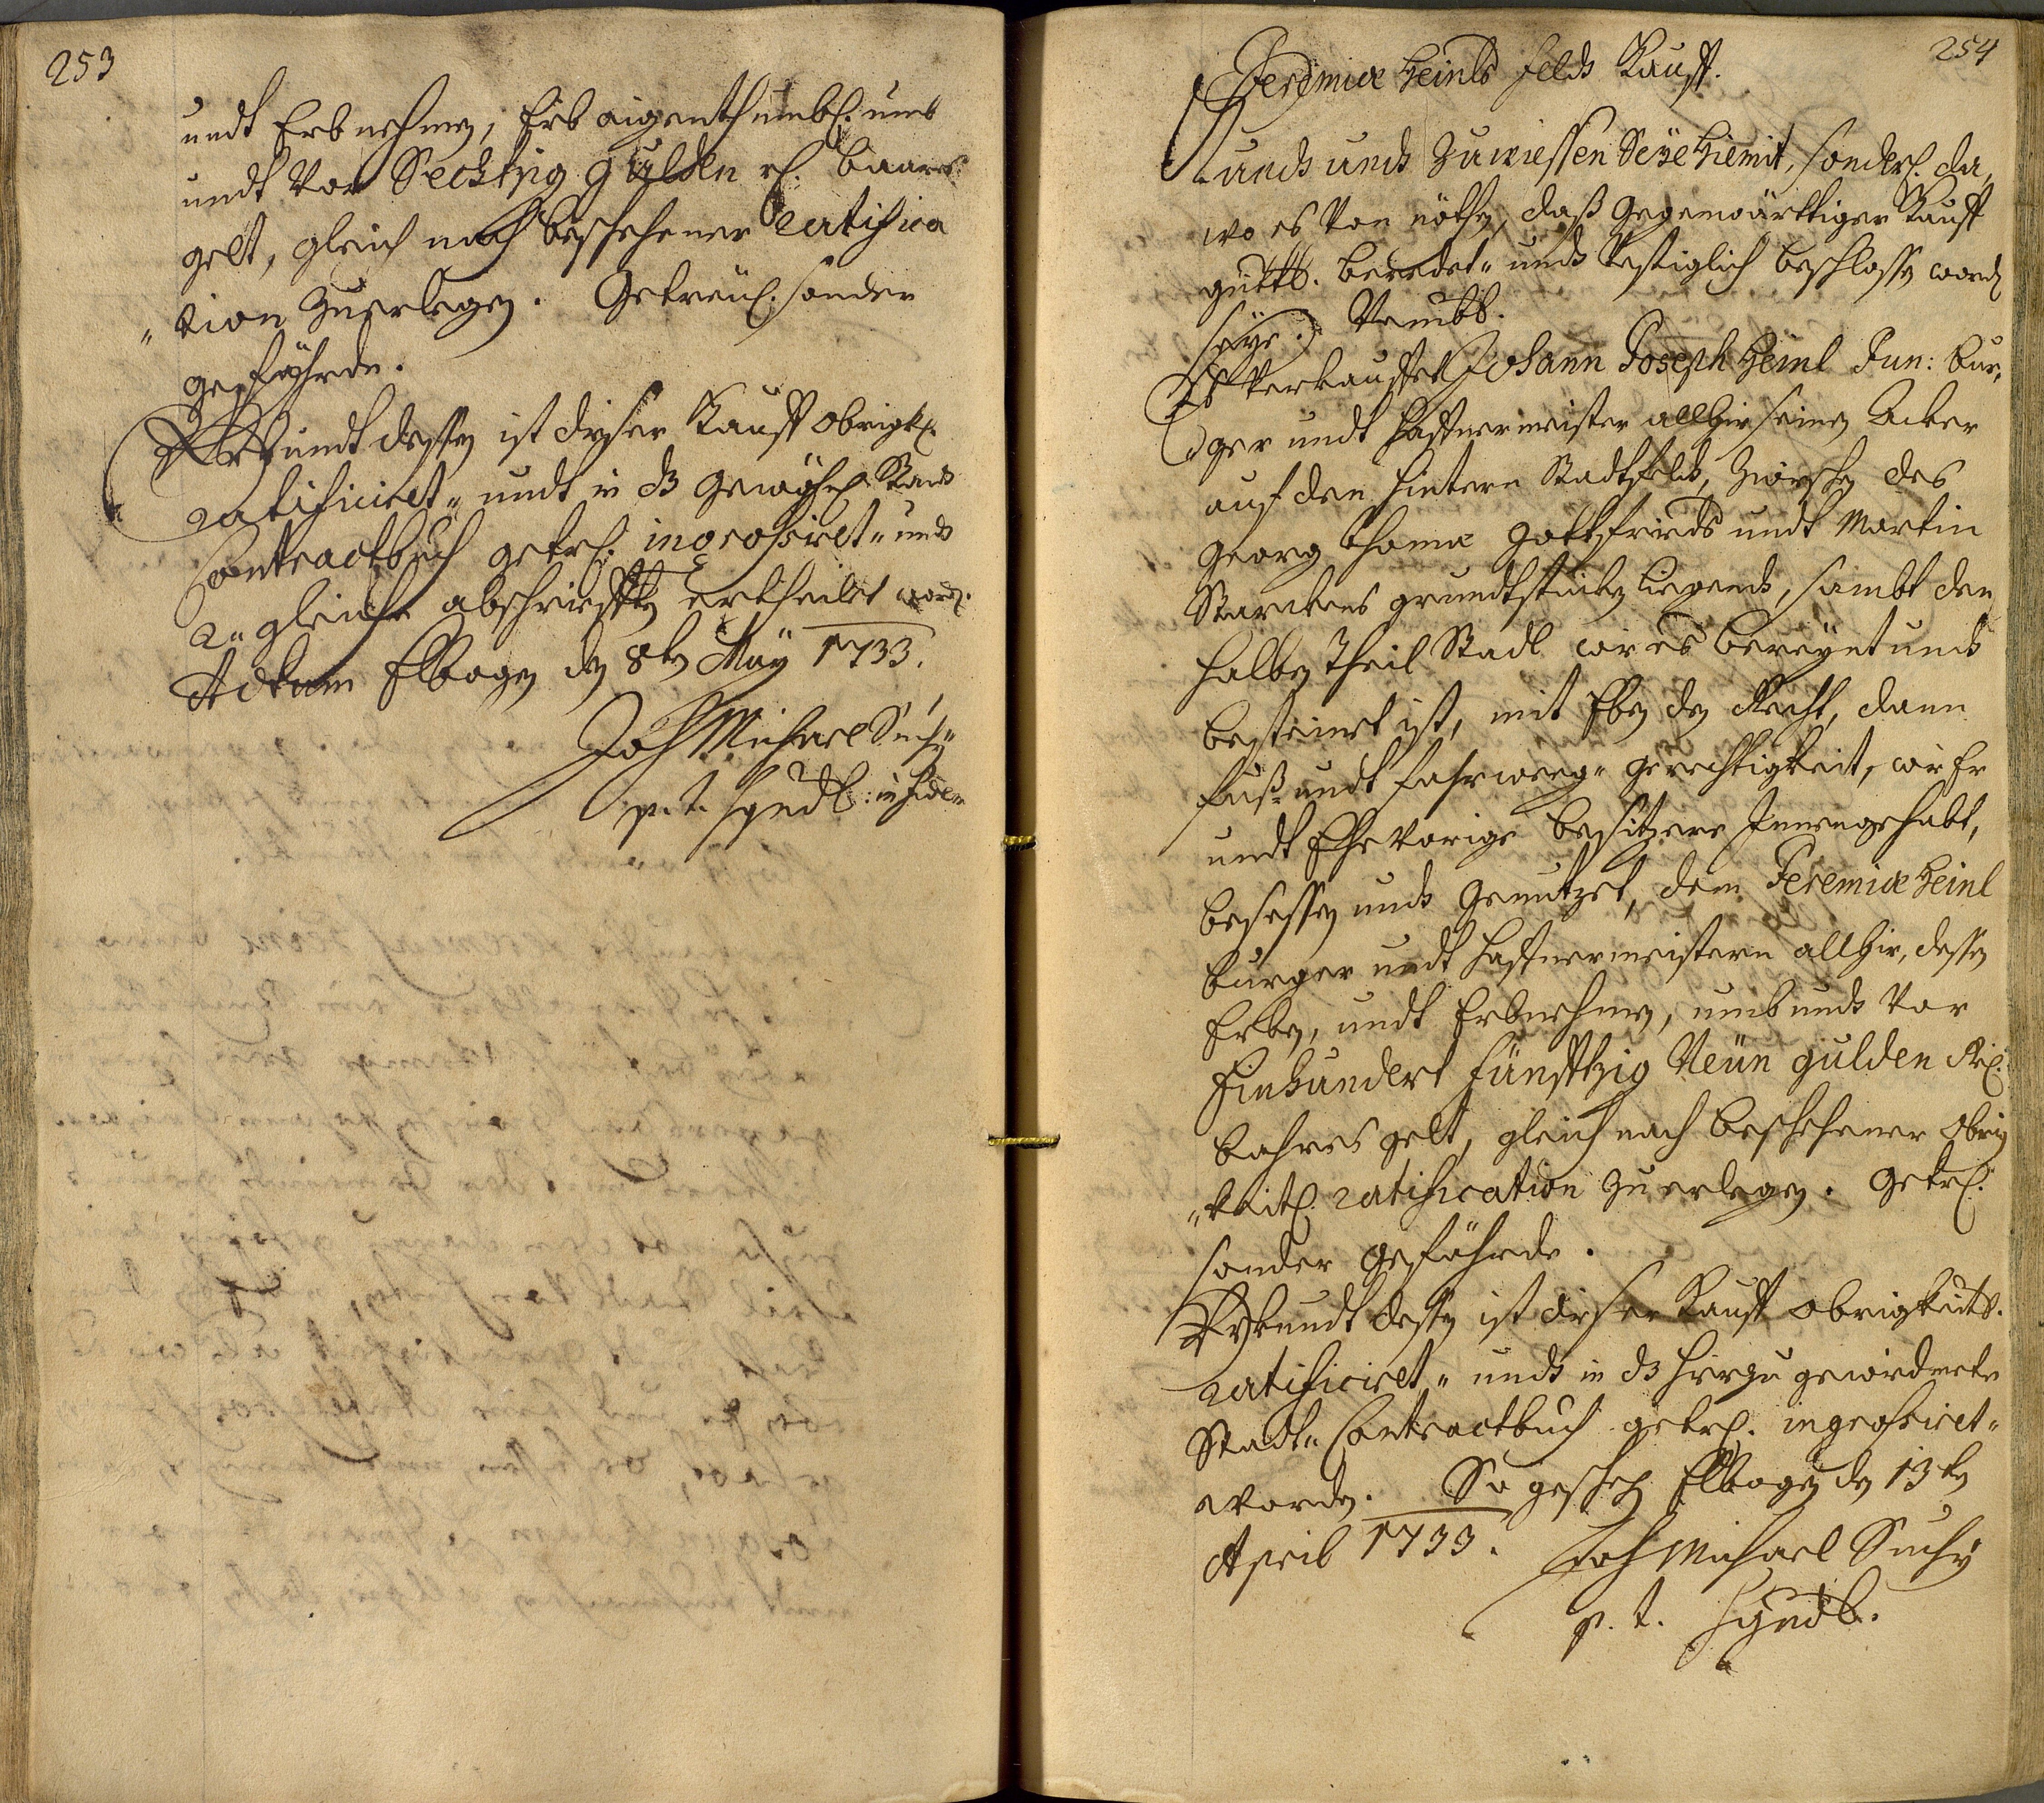 253
undt Erbnehmen, Erb aigenthumbl: umb
undt Vor Sechtzig gulden rh. baares
gelt, gleich nach beschehener ratifica
"tion Zuerlegen. Getreül. sonder
gefährde.
Uhrkundt dessen ist dieser Kauff obrigkl.
ratificiret" undt in dz gewöhnl. Stadt
Contractbuch getrl. ingrossiret" undt
2" gleiche abschriefften ertheilet word.
Actum Elbogen den 8ten Maÿ 1733.
Joh Michael Suchÿ
p. t. Syndic:
254
Jeremiæ Heinls feldt Kauff.
Kundt undt Zuwiessen Seÿe hiemit, sonderl. da,
wo es Von nöthen, daß gegenwärttiger Kauff
güttl. beredet" undt Vestiglich beschlossen worden
seÿe. Nembl.
Es Verkauffet Johann Joseph Heinl Jun: Bur,
"ger undt Haffnermeister allhier seinen Acker
auf den hintern Stadtfeldt, Zwischen des
Georg Thomæ Gottfrieds undt Martin
Starckens grundtstücken Liegendt, sambt den
halben Theil Stadl wie es bereÿnt undt
besteinet ist, mit Eben den Recht, dann
fuß- undt fahrweeg" gerechtigkeit, wie Er
undt Ehevorige besitzere Innengehabt,
besessen undt genutzet, dem Jeremiæ Heinl
burger undt Haffnermeistern allhier, dessen
Erben, undt Erbnehmen, umb undt Vor
Einhundert fünfftzig Neün gulden Rh:
bahres gelt, gleich nach beschehener Obrig
"keitl. ratification Zuerlegen. Getrl.
sonder gefährde.
Uhrkundt dessen ist dieser Kauff obrigkeitl.
ratificiret" undt in dz hierzu gewidmete
Stadt" Contractbuch getrl. ingrossiret"
worden. So geschehen Elbogen den 13ten
April 1733. Joh Michael Suchÿ
p. t. Syndic.